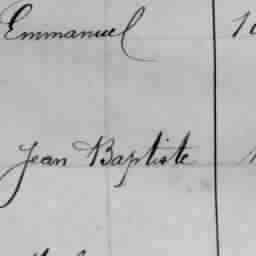 Emmanuel
Jean Baptiste